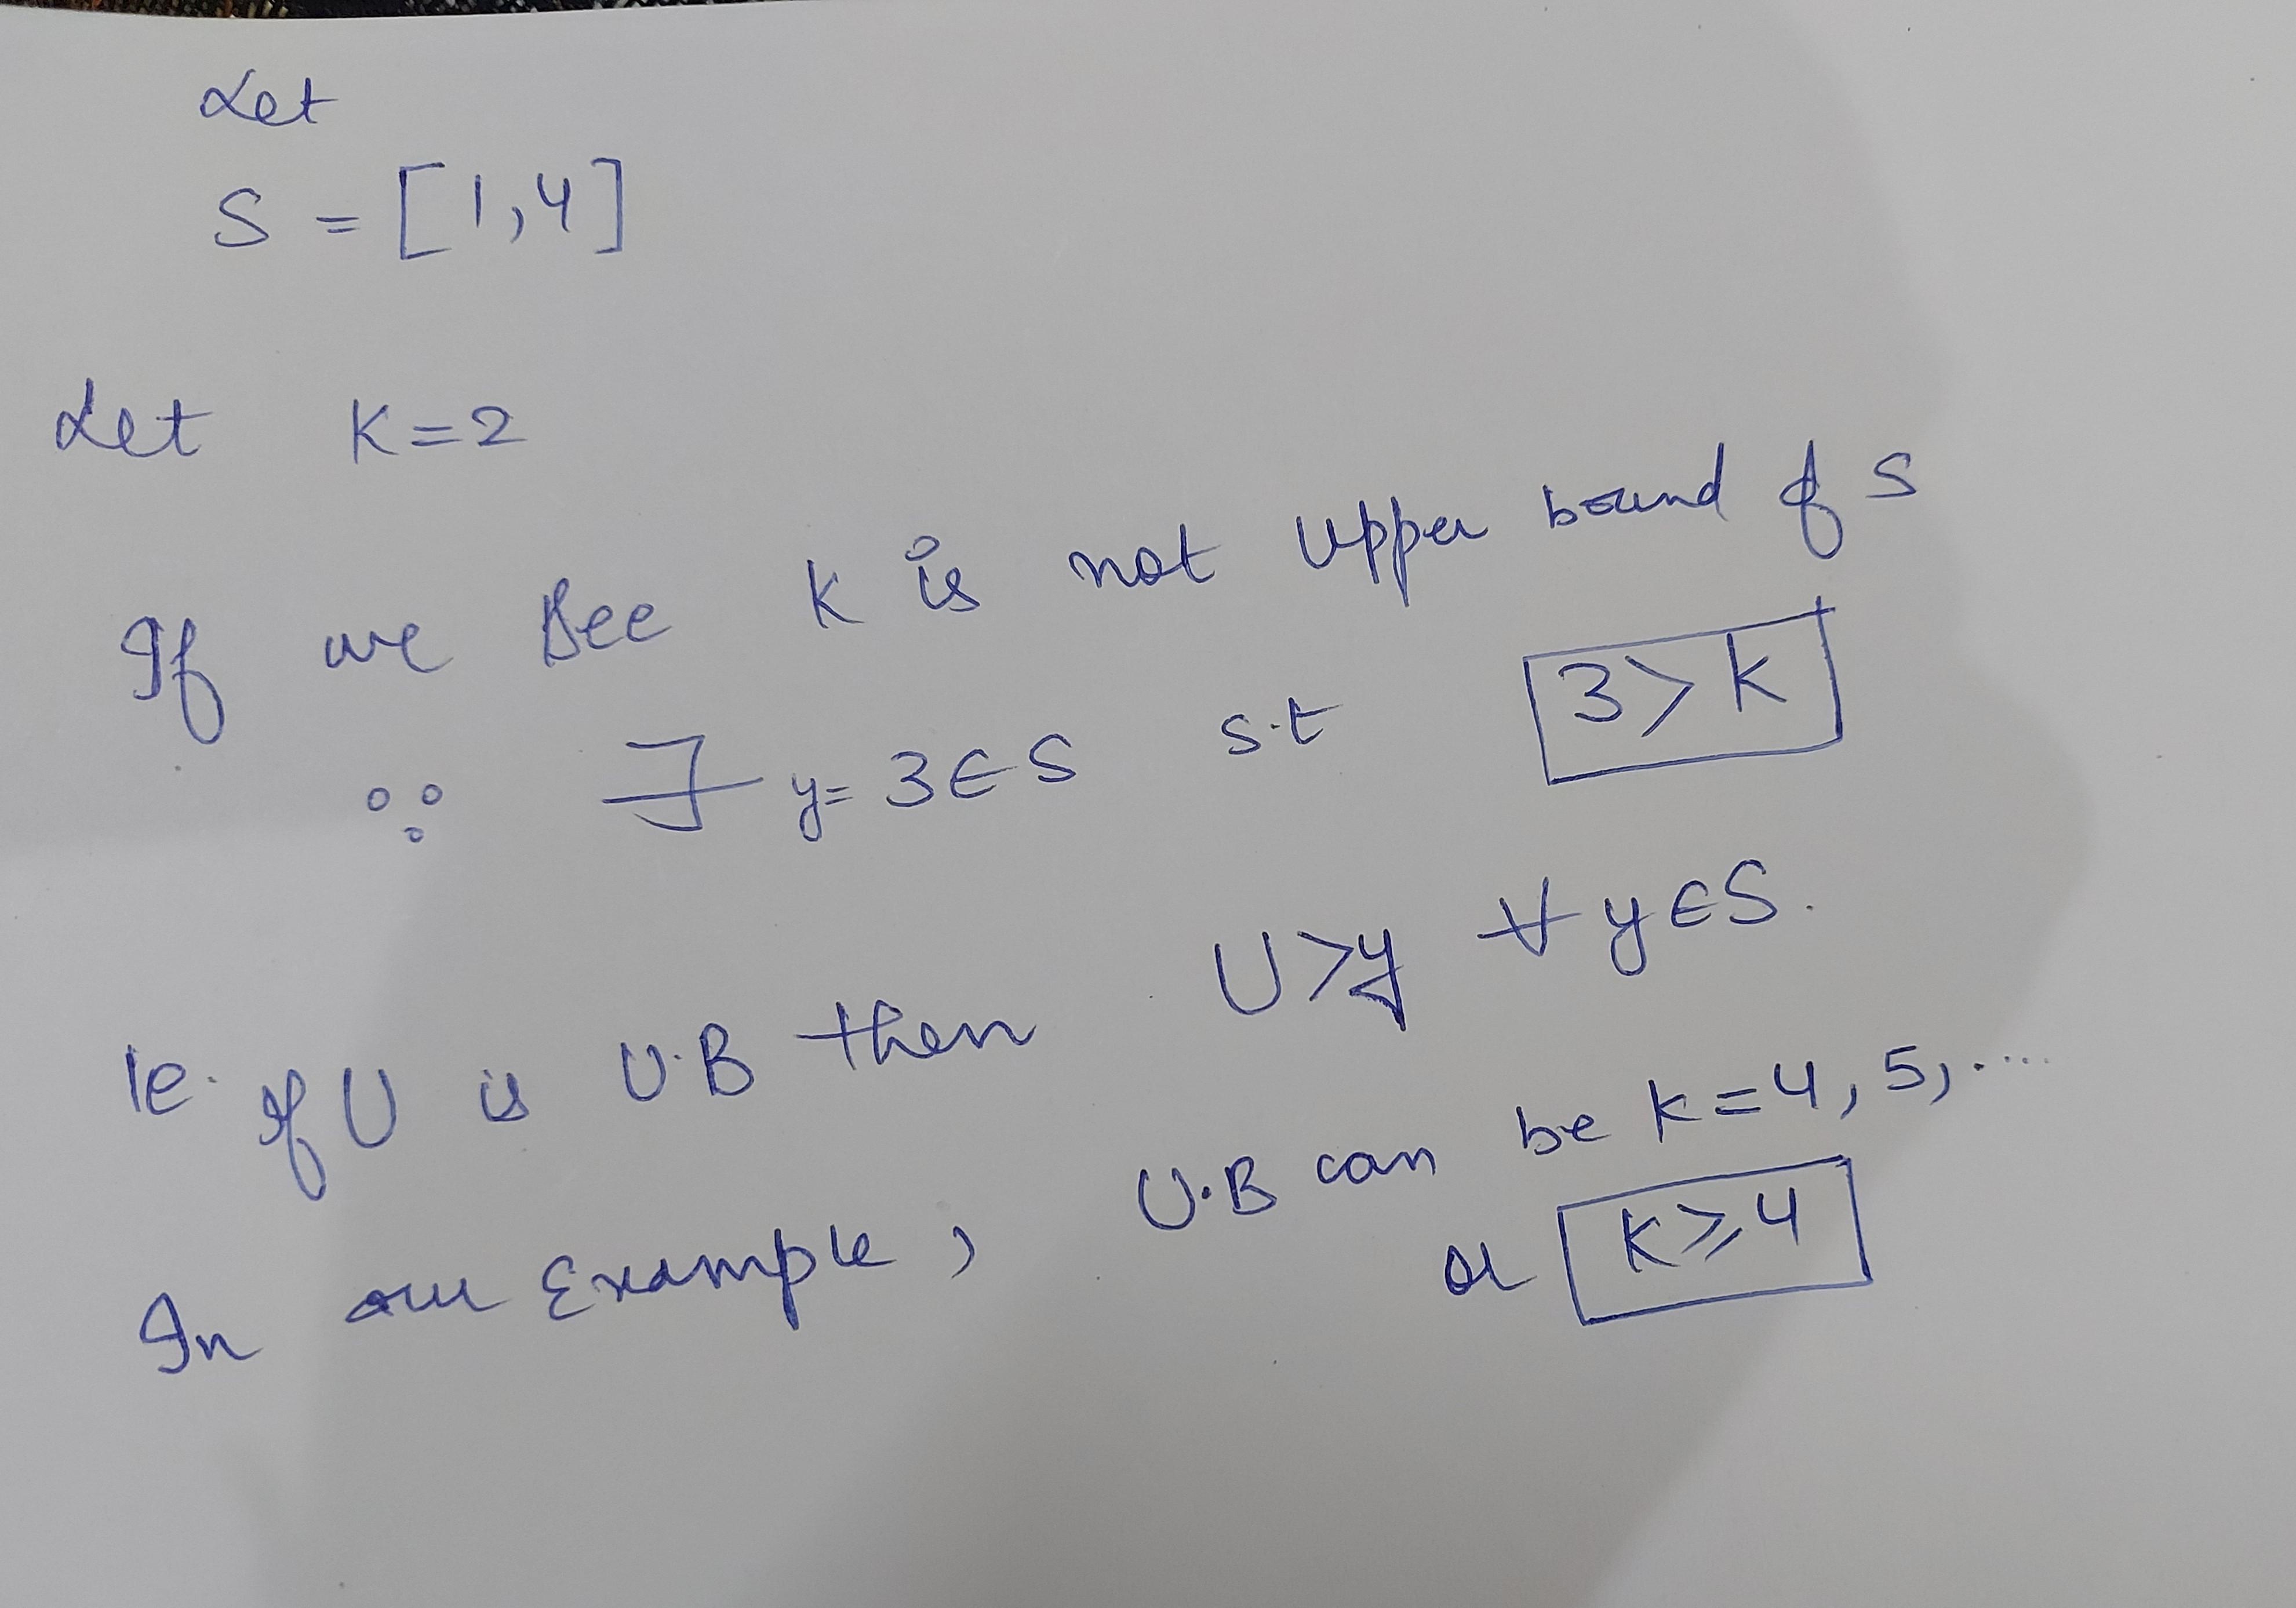 Let
S = [1,4]
Let K=2
If we see K is not Upper bound of S
∵ ∃ y= 3 ∈ S s.t 3>K
ie. if U is U.B then U>y ∀ y∈S.
In our Example, U.B can be K=4, 5, ....
or K⩾4